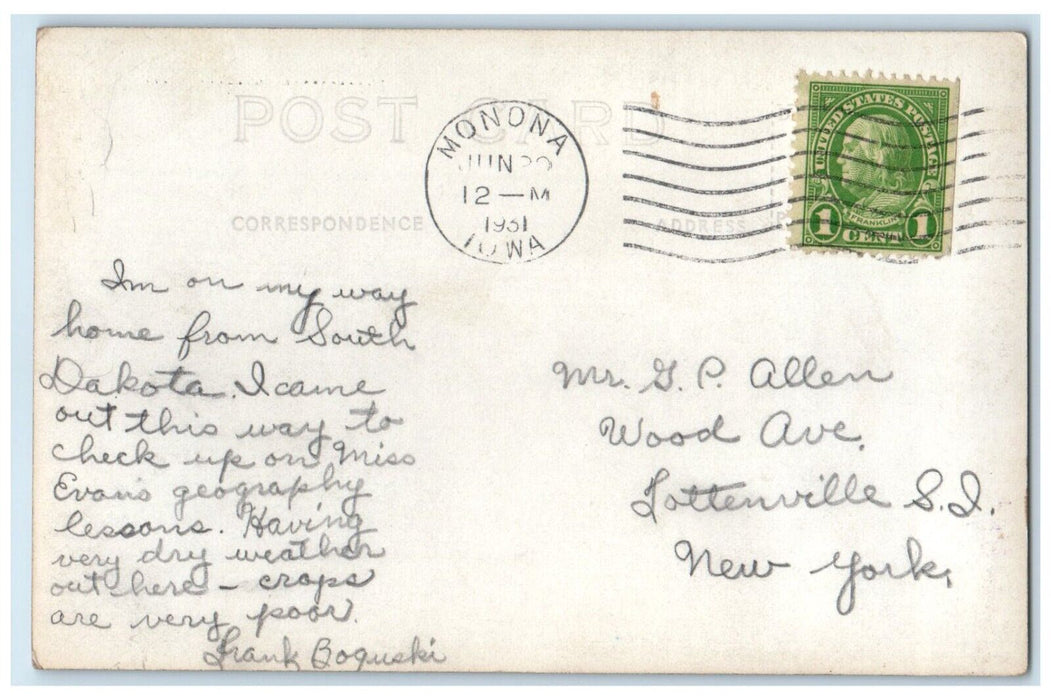 POST CARD
MONONA
JUN 20
12 — M
1931
IOWA
UNITED STATES POSTAGE
FRANKLIN
1 CENT 1
CORRESPONDENCE
ADDRESS
Im on my way
home from South
Dakota. I came
out this way to
check up on Miss
Evans geography
lessons. Having
very dry weather
out here – crops
are very poor.
Frank Boguski
Mr. G. P. Allen
Wood Ave.
Tottenville S.I.
New York.